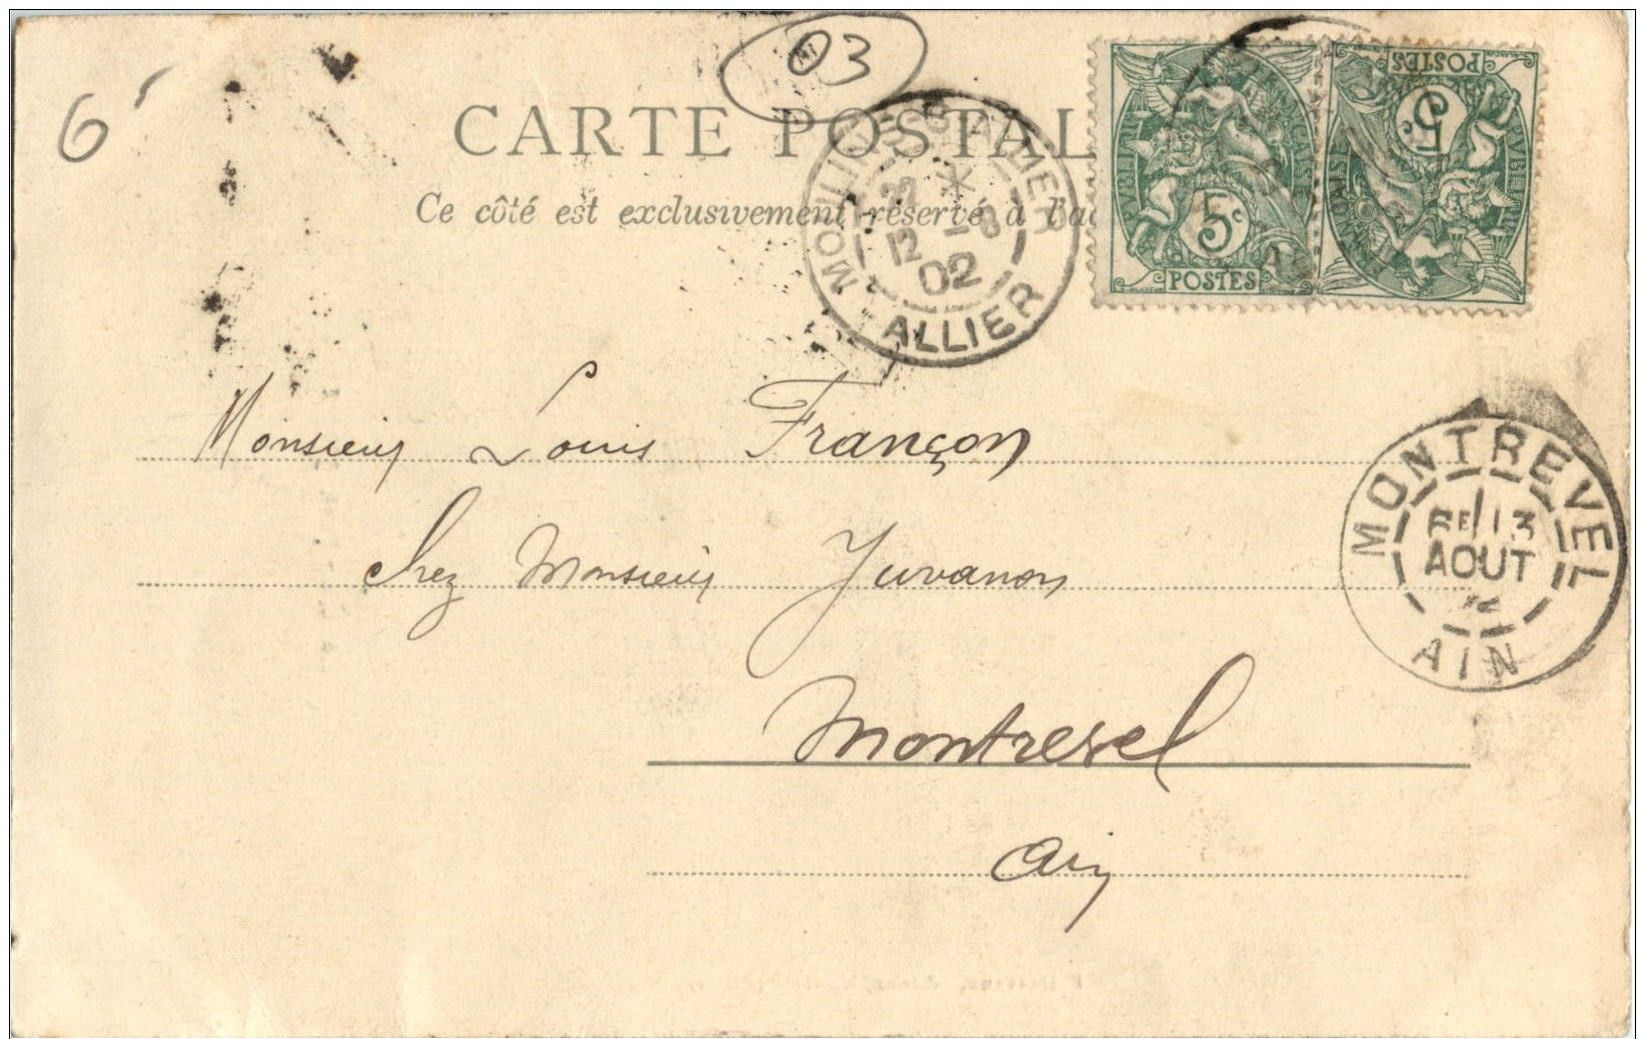 6'
03
CARTE POSTAL
Ce côté est exclusivement réservé à l'a
MOULINS
12 -8
02
ALLIER
5c
POSTES
5c
POSTES
Monsieur Louis Françon
Chez Monsieur Juvanon
Montrevel
Ain
MONTREVEL
13
AOUT
AIN